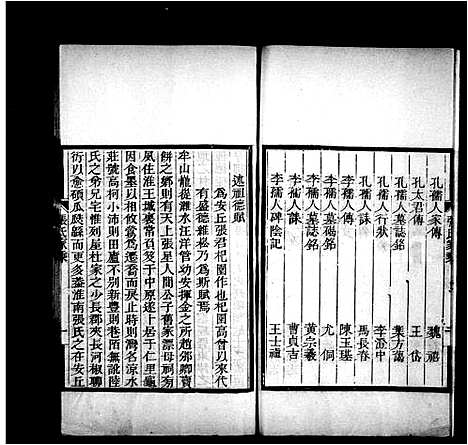 孔孺人家傳　魏禧
孔太君傳　王岱
孔孺人墓誌銘　葉方藹
孔孺人行狀　李澄中
孔孺人誄　馬長春
李孺人傳　陳玉璂
李孺人墓碣銘　尤侗
李孺人墓誌銘　黃宗羲
李孺人誄　曹貞吉
李孺人碑陰記　王士禛
述祖德賦
為安丘張君杞園作也杞園高曾以來代
有盛德雜松乃為斯賦焉
牟山龍從濰水汪洋管幼安揮金之所趙邠卿賣
餅之鄉則有天上張星人間公子舊家漂母祠前
夙住淮王城裏常召自中原遂上居于仁里龜
因食墨以相攸鶯為遷喬而戾止時則灣名涼水
莊號高柯小沛則田廬不別新豐則巷陌無訛陸
氏之弟兄宅惟列星杜家之少長郡夾長河椒聊
衍以愈碩瓜瓞緜而更多蓋淮南張氏之在安丘